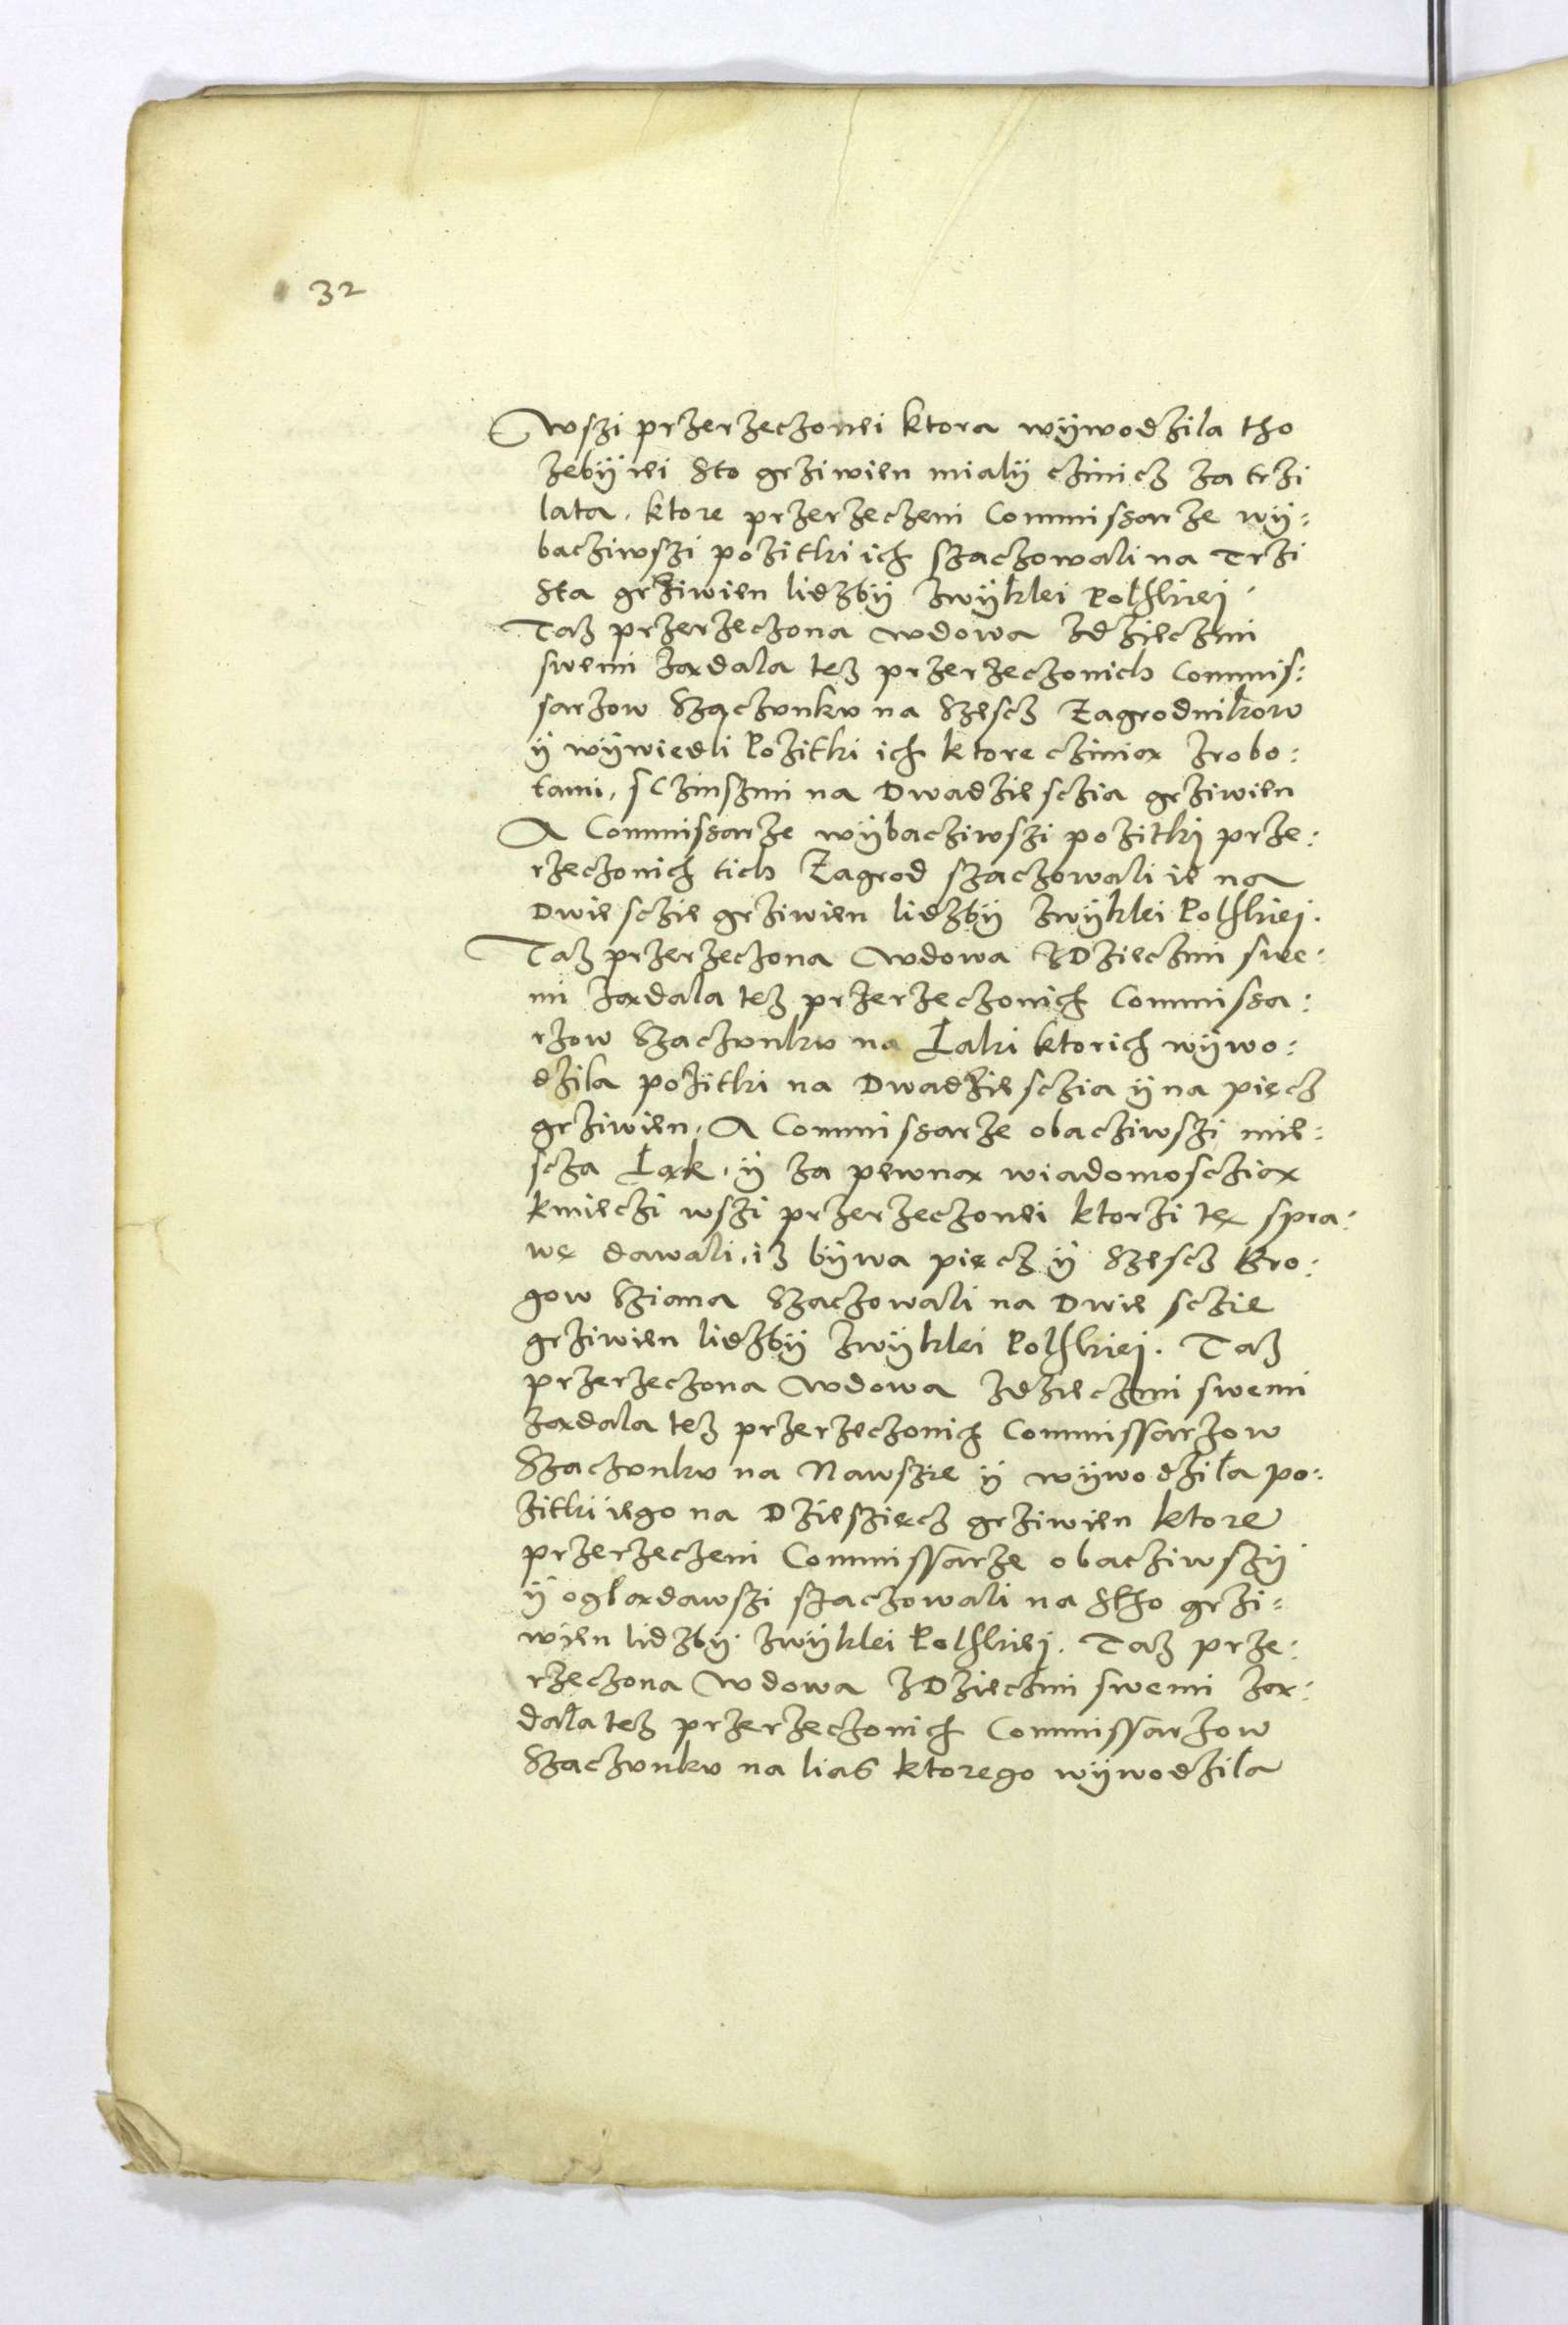 32
wszi przerzeczonei ktora wÿwodzila tho
zebÿ iei Sto grziwien mialÿ czinicz za trzi
lata. ktore przerzeczeni Commissarze wÿ:
bacziwszi pozitki ich szaczowali na Trzi
Sta grziwien lidzbÿ zwÿklei Polskiej.
Taz przerzeczona wdowa zdzieczmi
swemi zaxdala tez przerzeczonich Commis:
sarzow Szaczunku na Szescz Zagrodnikow
ÿ wÿwiedli Pozitki ich ktore cziniax zrobo:
tami, sCzinszmi na Dwadziesczia grziwien
A Commissarze wÿbacziwszi pozitkj prze:
rzeczonich tich Zagrod szaczowali ie na
Dwiesczie grziwien lidzbÿ zwÿklei Polskiej.
Taz przerzeczona Wdowa zDzieczmi swe:
mi zaxdala tez przerzeczonich Commissa:
rzow Szaczunku na Łaki ktorich wÿwo:
dzila pozitki na Dwadziesczia ÿ na pięcz
grziwien, A Commissarze obacziwszi mie:
scza Łaxk, ÿ za pewnax wiadomoscziax
kmieczi wszi przerzeczonei ktorzi tę spra:
wę dawali, iz bÿwa pięcz ÿ Szescz Bro:
gow Sziana Szaczowali na Dwie sczie
grziwien lidzbÿ zwÿklei Polskiej. Taz
przerzeczona Wdowa zdzieczmi swemi
zaxdala tez przerzeczonich Commissarzow
Szaczunku na Nawszie ÿ wÿwodziła po:
zitki iego na Dzieszięcz grziwien ktore
przerzeczeni Commissarze obacziwszÿ
ÿ oglaxdawszi szaczowali na Stho grzi:
wien lidzbÿ zwÿklei Polskiej. Taz prze:
rzeczona Wdowa zDzieczmi swemi zax:
dała tez przerzeczonich Commissarzow
Szaczunku na lias ktorego wÿwodzila